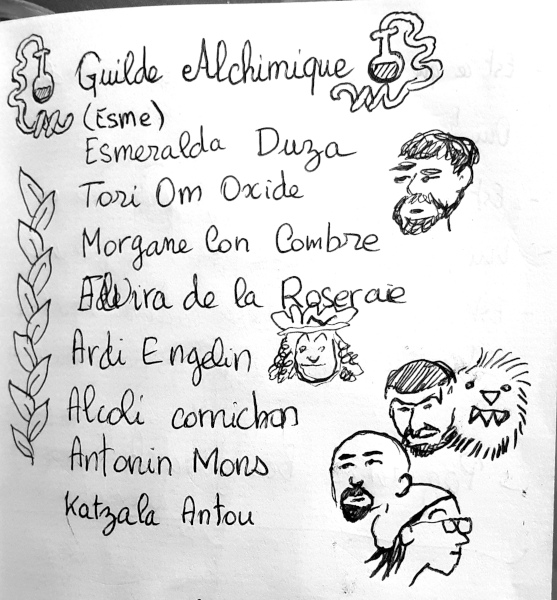 Guilde Alchimique
(Esme)
Esmeralda Duza
Tori Om Oxide
Morgane Con Combre
Elvira de la Roseraie
Ardi Engelin
Alcoli cornichon
Antonin Mons
Katzala Antou